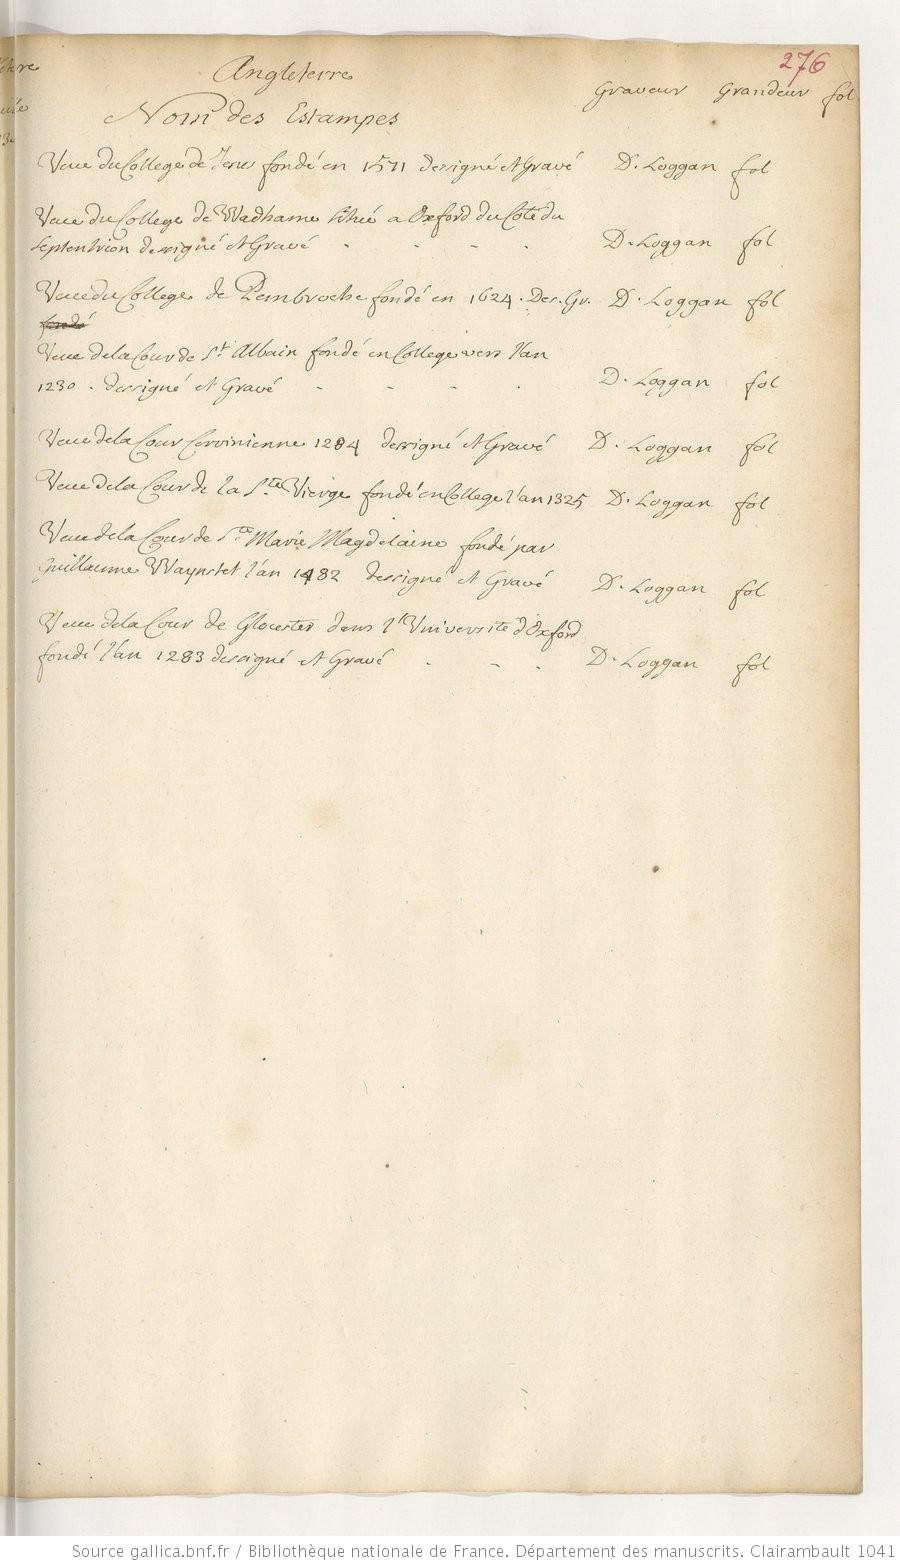 276
Angleterre
Graveur Grandeur fol
Nom des Estampes
Veue du College de Jesus fondé en 1571 dessigné et Gravé D. Loggan fol
Veue du College de Wadhame situé a Oxford du Coté du
septentrion dessigné et Gravé - - - - D. Loggan fol
Veue du College de Pembroche fondé en 1624. Des. Gr. D. Loggan fol
fondé
Veue de la Cour de St. Albain fondé en College vers l'an
1230. dessigné et Gravé - - - . D. Loggan fol
Veue de la Cour Cervinienne 1284 dessigné et Gravé D. Loggan fol
Veue de la Cour de la Ste. Vierge fondé en College l'an 1325 D. Loggan fol
Veue de la Cour de Ste. Marie Magdelaine fondé par
Guillaume Waynstet l'an 1482 dessigné et Gravé D. Loggan fol
Veue de la Cour de Glocester dans l'Université d'Oxford
fondé l'an 1283 dessigné et Gravé . - . D. Loggan fol
Source gallica.bnf.fr / Bibliothèque nationale de France. Département des manuscrits. Clairambault 1041